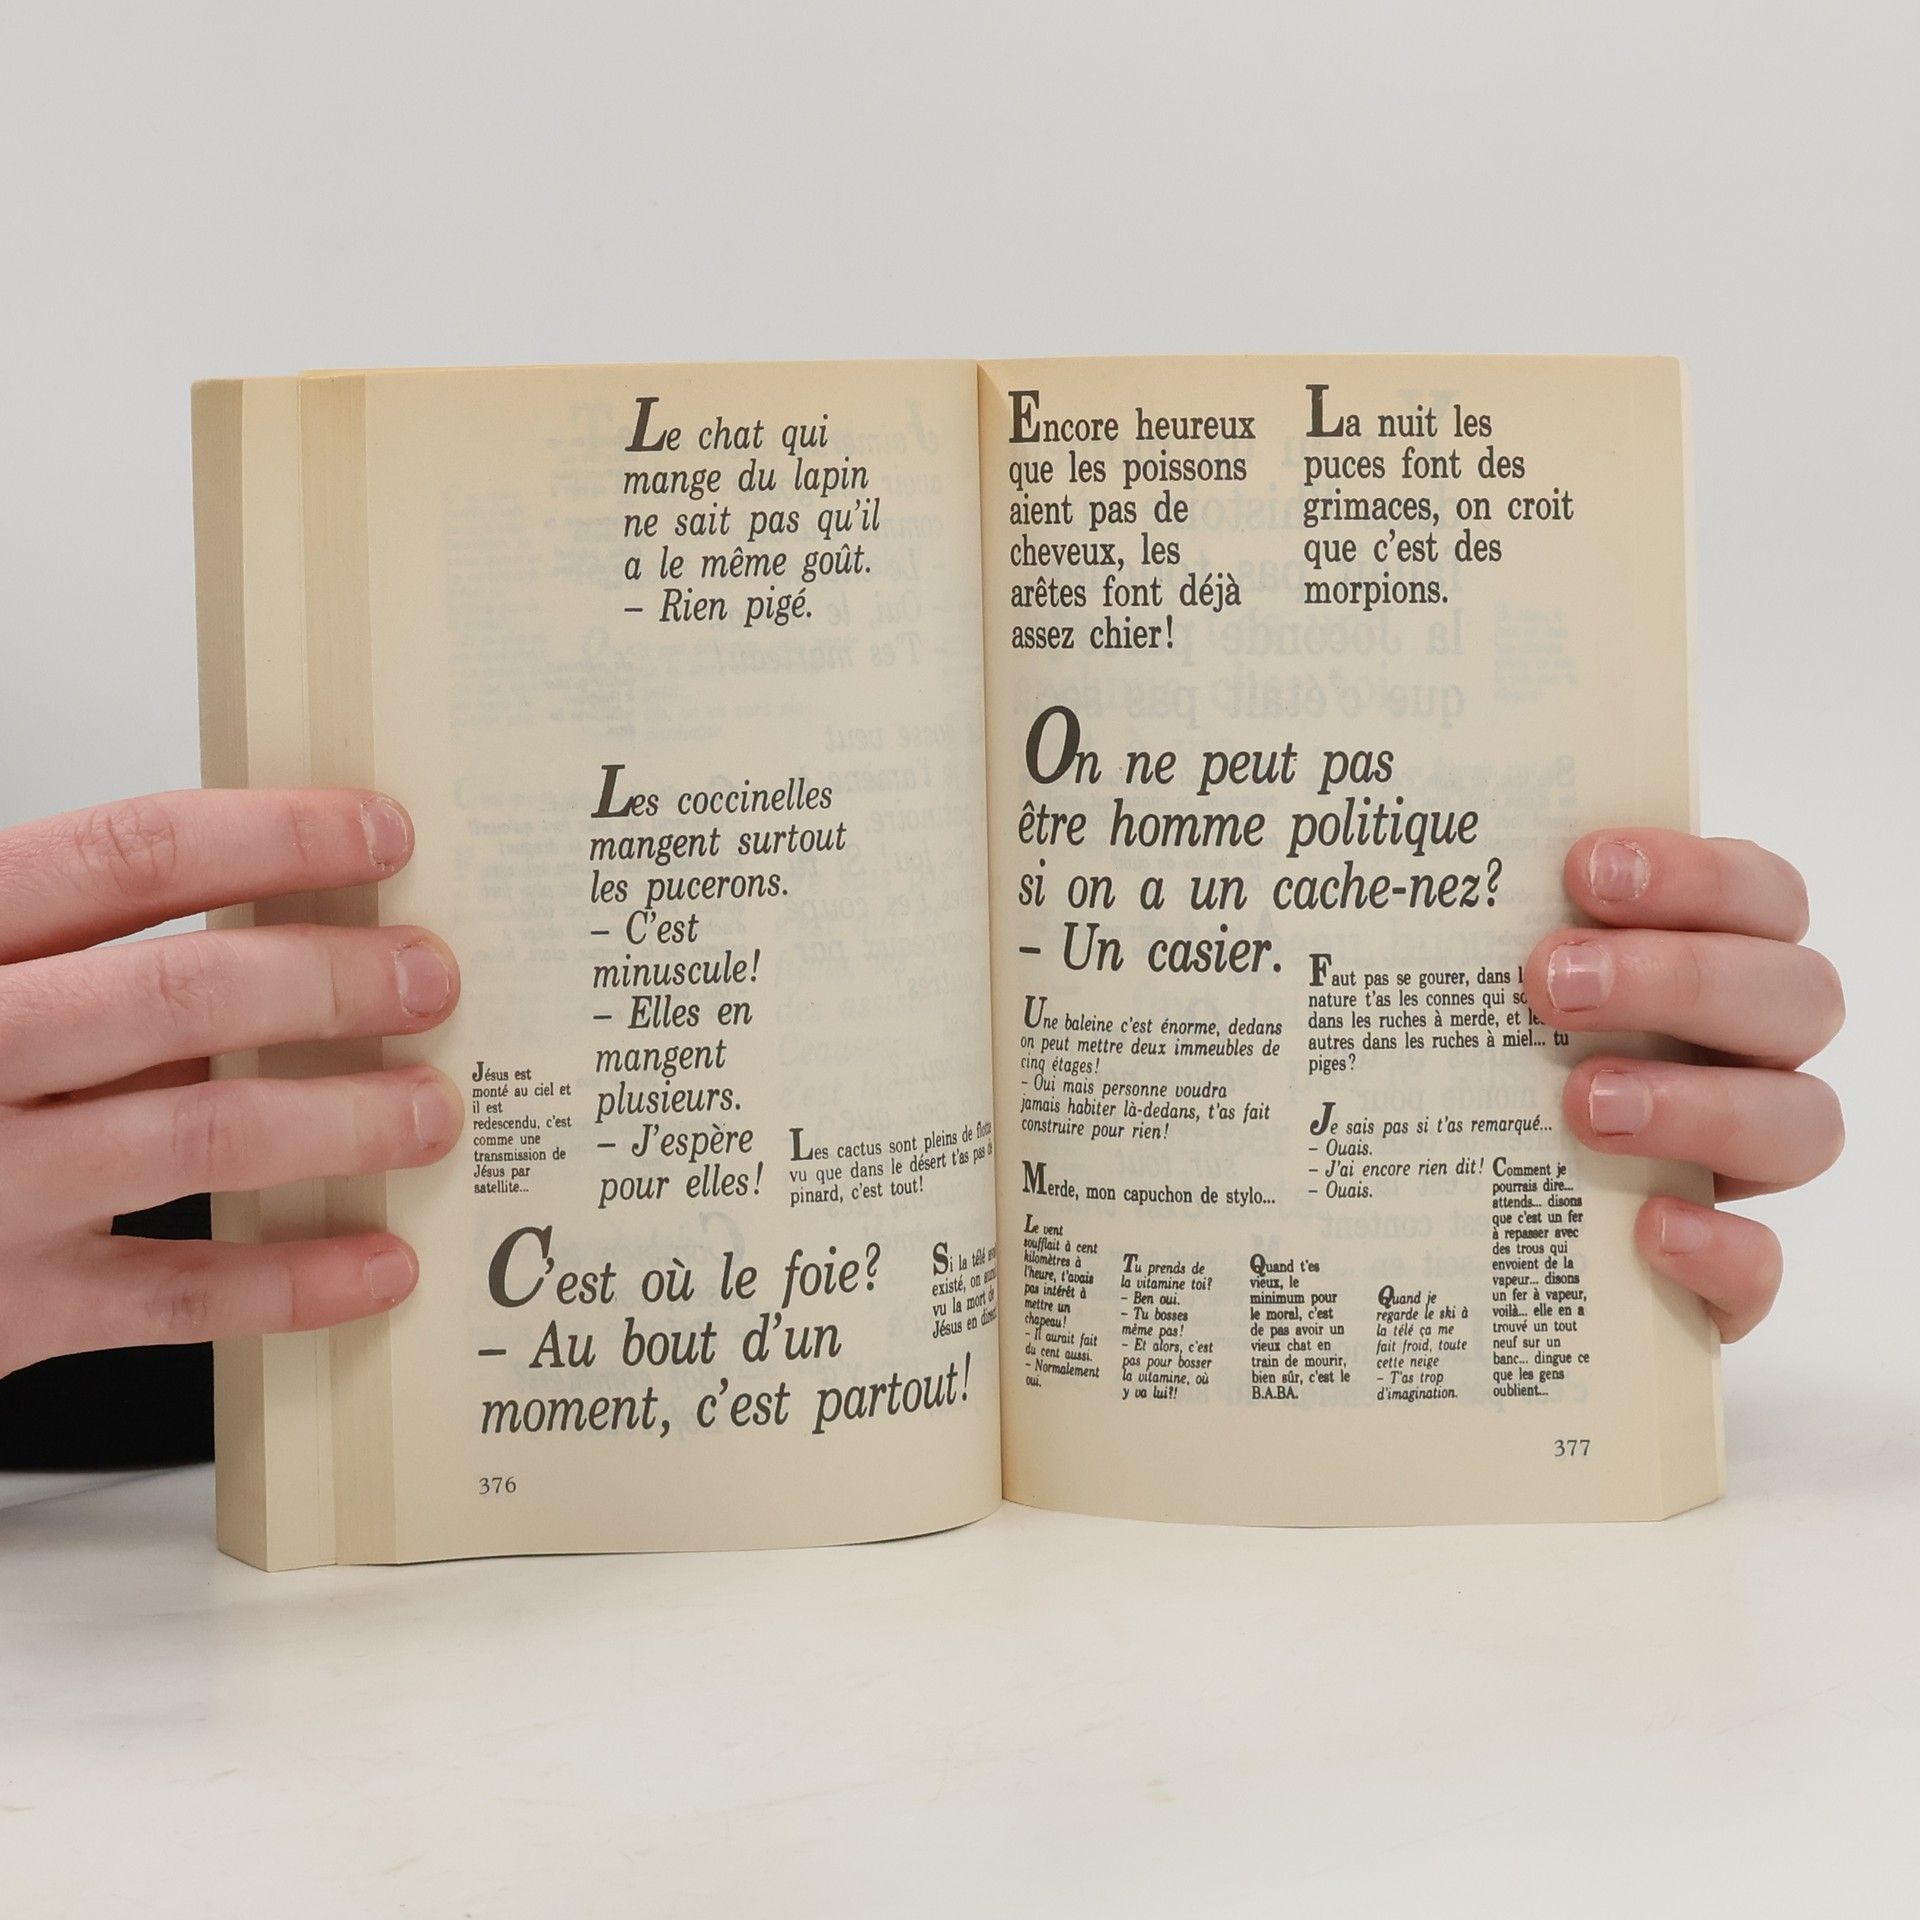 Le chat qui
mange du lapin
ne sait pas qu'il
a le même goût.
– Rien pigé.
Les coccinelles
mangent surtout
les pucerons.
– C'est
minuscule!
– Elles en
mangent
plusieurs.
– J'espère
pour elles!
Jésus est
monté au ciel et
il est
redescendu, c'est
comme une
transmission de
Jésus par
satellite...
Les cactus sont pleins de flotte
vu que dans le désert t'as pas de
pinard, c'est tout!
C'est où le foie?
– Au bout d'un
moment, c'est partout!
Si la télé
existé, on
vu la mort de
Jésus en direct
376
Encore heureux
que les poissons
aient pas de
cheveux, les
arêtes font déjà
assez chier!
La nuit les
puces font des
grimaces, on croit
que c'est des
morpions.
On ne peut pas
être homme politique
si on a un cache-nez?
– Un casier.
Une baleine c'est énorme, dedans
on peut mettre deux immeubles de
cinq étages!
– Oui mais personne voudra
jamais habiter là-dedans, t'as fait
construire pour rien!
Faut pas se gourer, dans
nature t'as les connes qui
dans les ruches à merde, et
autres dans les ruches à miel... tu
piges?
Je sais pas si t'as remarqué...
– Ouais.
– J'ai encore rien dit!
– Ouais.
Merde, mon capuchon de stylo...
Le vent
soufflait à cent
kilomètres à
l'heure, t'avais
pas intérêt à
mettre un
chapeau!
– Il aurait fait
du cent aussi.
– Normalement
oui.
Tu prends de
la vitamine toi?
– Ben oui.
– Tu bosses
même pas!
– Et alors, c'est
pas pour bosser
la vitamine, où
y va lui?!
Quand t'es
vieux, le
minimum pour
le moral, c'est
de pas avoir un
vieux chat en
train de mourir,
bien sûr, c'est le
B.A.BA.
Quand je
regarde le ski à
la télé ça me
fait froid, toute
cette neige
– T'as trop
d'imagination.
Comment je
pourrais dire...
attends... disons
que c'est un fer
à repasser avec
des trous qui
envoient de la
vapeur... disons
un fer à vapeur,
voilà... elle en a
trouvé un tout
neuf sur un
banc... dingue ce
que les gens
oublient...
377